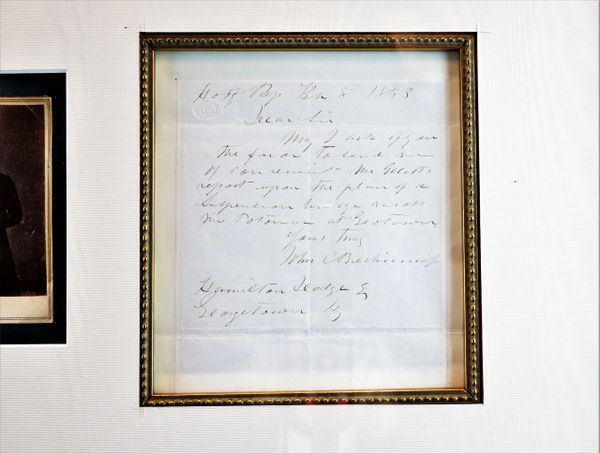 Ho of Rep Feb 8 1853
Dear Sir
May I ask of you
the favor to send me
if convenient Mr Ellets
report upon the plan of a
Suspension bridge across
the Potomac at Geotown
Yours truly
John C Breckinridge
Hamilton
Georgetown